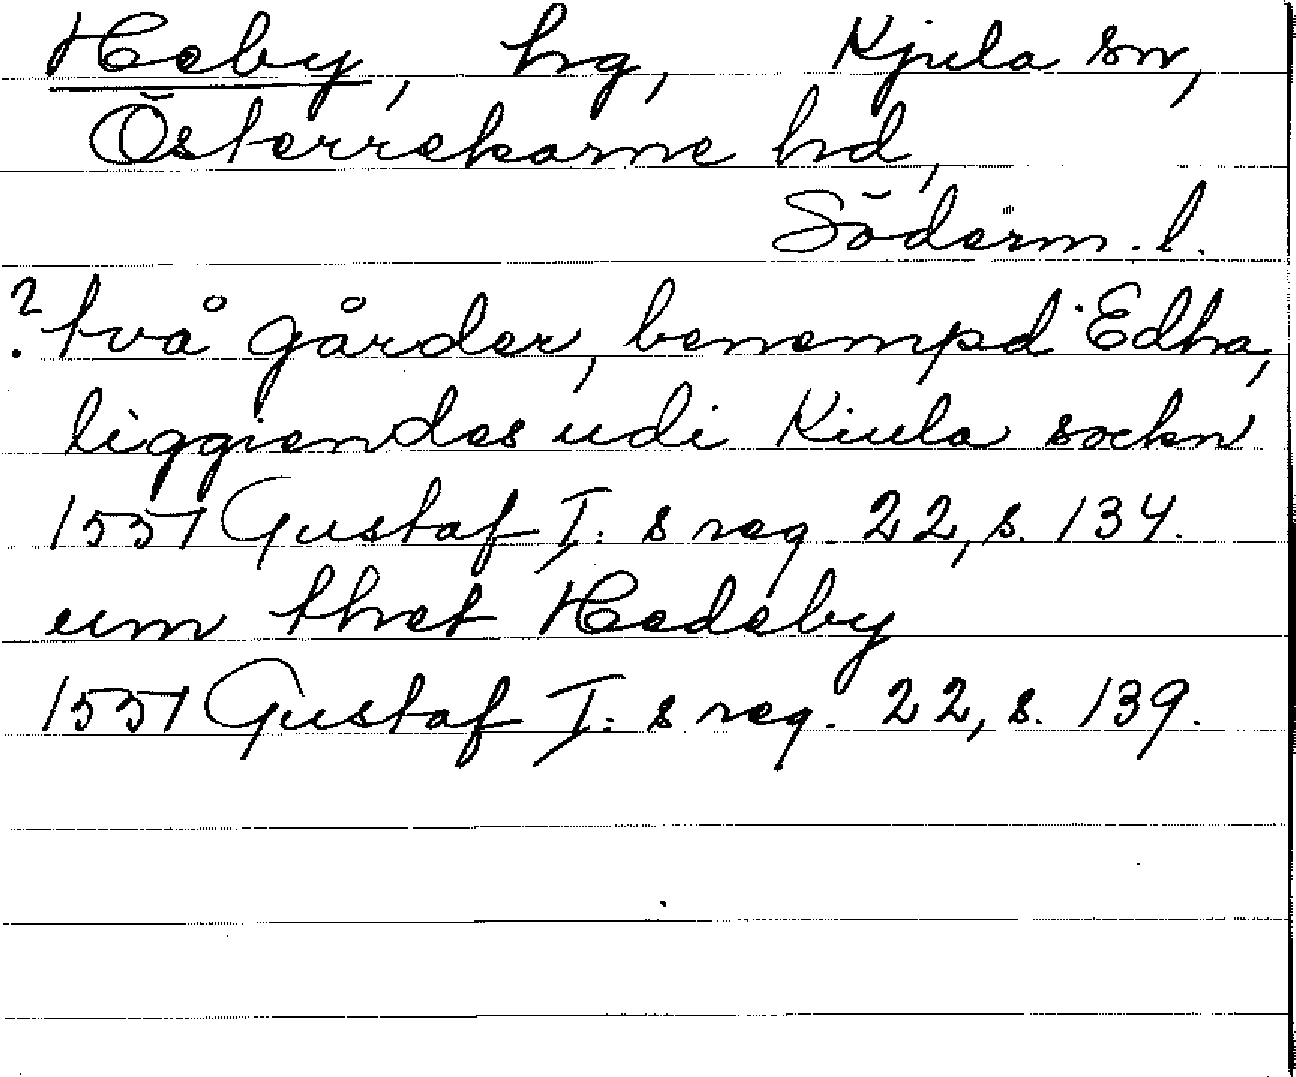 Heby, hg, Kjula sn,
Österrekarne hd,
Söderm. l.
? två gårder, benempd Edha,
liggiendes udi Kiula sockn
1551 Gustaf I:s reg. 22, s. 134.
um thet Hedeby
1551 Gustaf I:s reg. 22, s. 139.